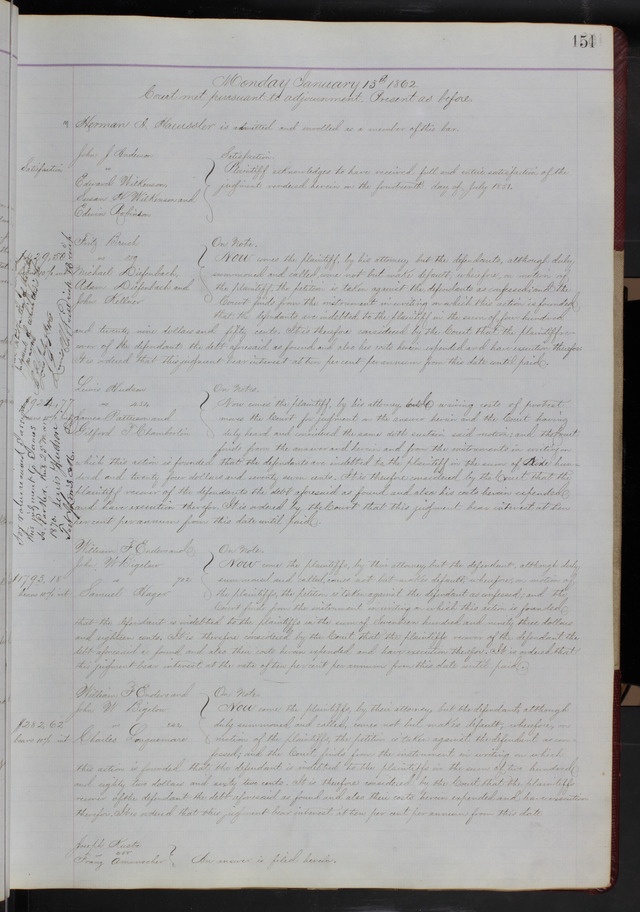 151
Monday January 13th 1862
Court met pursuant to adjournment. Present as before.
Herman A. Haeussler is admitted and enrolled as a member of this bar.
Satisfaction
John J. Anderson
vs
Edward Wilkinson
Susan H. Wilkinson and
Edwin Robinson
Satisfaction.
Plaintiff acknowledges to have received full and entire satisfaction of the
judgment rendered herein on the fourteenth day of July 1861.
Fritz Brush
vs
Michael Diefenbach
Adam Diefenbach and
John
On Note.
Now comes the plaintiff, by his attorney but the defendants, although duly
summoned and called, come not but make default, wherefore, on motion of
the plaintiff, the petition is taken against the defendants as confessed; and the
Court finds from the instrument in writing on which this action is founded
that the defendants are indebted to the plaintiff in the sum of four hundred
and twenty nine dollars and fifty cents. It is therefore considered by the Court that the plaintiff re-
cover of the defendants the debt aforesaid as found and also his costs herein expended and have execution therefor.
It is ordered that this judgment bear interest at ten per cent per annum from this date until paid.
Lewis Hudson
vs
James Patterson and
Gilford F. Chamberlin
On Notes.
Now comes the Plaintiff, by his attorney and waiving costs of protest
moves the Court for judgment on the answer herein and the Court having
duly heard and considered the same doth sustain said motion; and the Court
finds from the answer and herein and from the instruments in writing on
which this action is founded that the defendants are indebted to the plaintiff in the sum of Nine hun-
dred and twenty four dollars and seventy seven cents. It is therefore considered by the Court that the
plaintiff recover of the defendants the debt aforesaid as found and also his costs herein expended
and have execution therefor. It is ordered by the Court that this judgment bear interest at ten
per cent per annum from this date until paid.
$1793.18
bears 10% int
William F. Enders and
John W. Bigelow
vs 702
Samuel Hager
On Note.
Now come the plaintiffs, by their attorney but the defendant, although duly
summoned and called, comes not but makes default; wherefore, on motion of
the plaintiffs, the petition is taken against the defendant as confessed; and the
Court finds from the instrument in writing on which this action is founded
that the defendant is indebted to the plaintiffs in the sum of seventeen hundred and ninety three dollars
and eighteen cents. It is therefore considered by the Court that the plaintiffs recover of the defendant the
debt aforesaid as found and also their costs herein expended and have execution therefor. It is ordered that
this judgment bear interest at the rate of ten per cent per annum from this date until paid.
$282.62
bears 10% int
William F. Enders and
John W. Bigelow
vs
Charles
On Note.
Now come the plaintiffs, by their attorney, but the defendant, although
duly summoned and called, comes not but makes default; wherefore, on
motion of the plaintiffs, the petition is taken against the defendant as con-
fessed; and the Court finds from the instrument in writing on which
this action is founded that the defendant is indebted to the plaintiffs in the sum of two hundred
and eighty two dollars and sixty two cents. It is therefore considered by the Court that the plaintiffs
recover of the defendant the debt aforesaid as found and also their costs herein expended and have execution
therefor. It is ordered that this judgment bear interest at ten per cent per annum from this date.
Joseph
vs
Franz
An answer is filed herein.